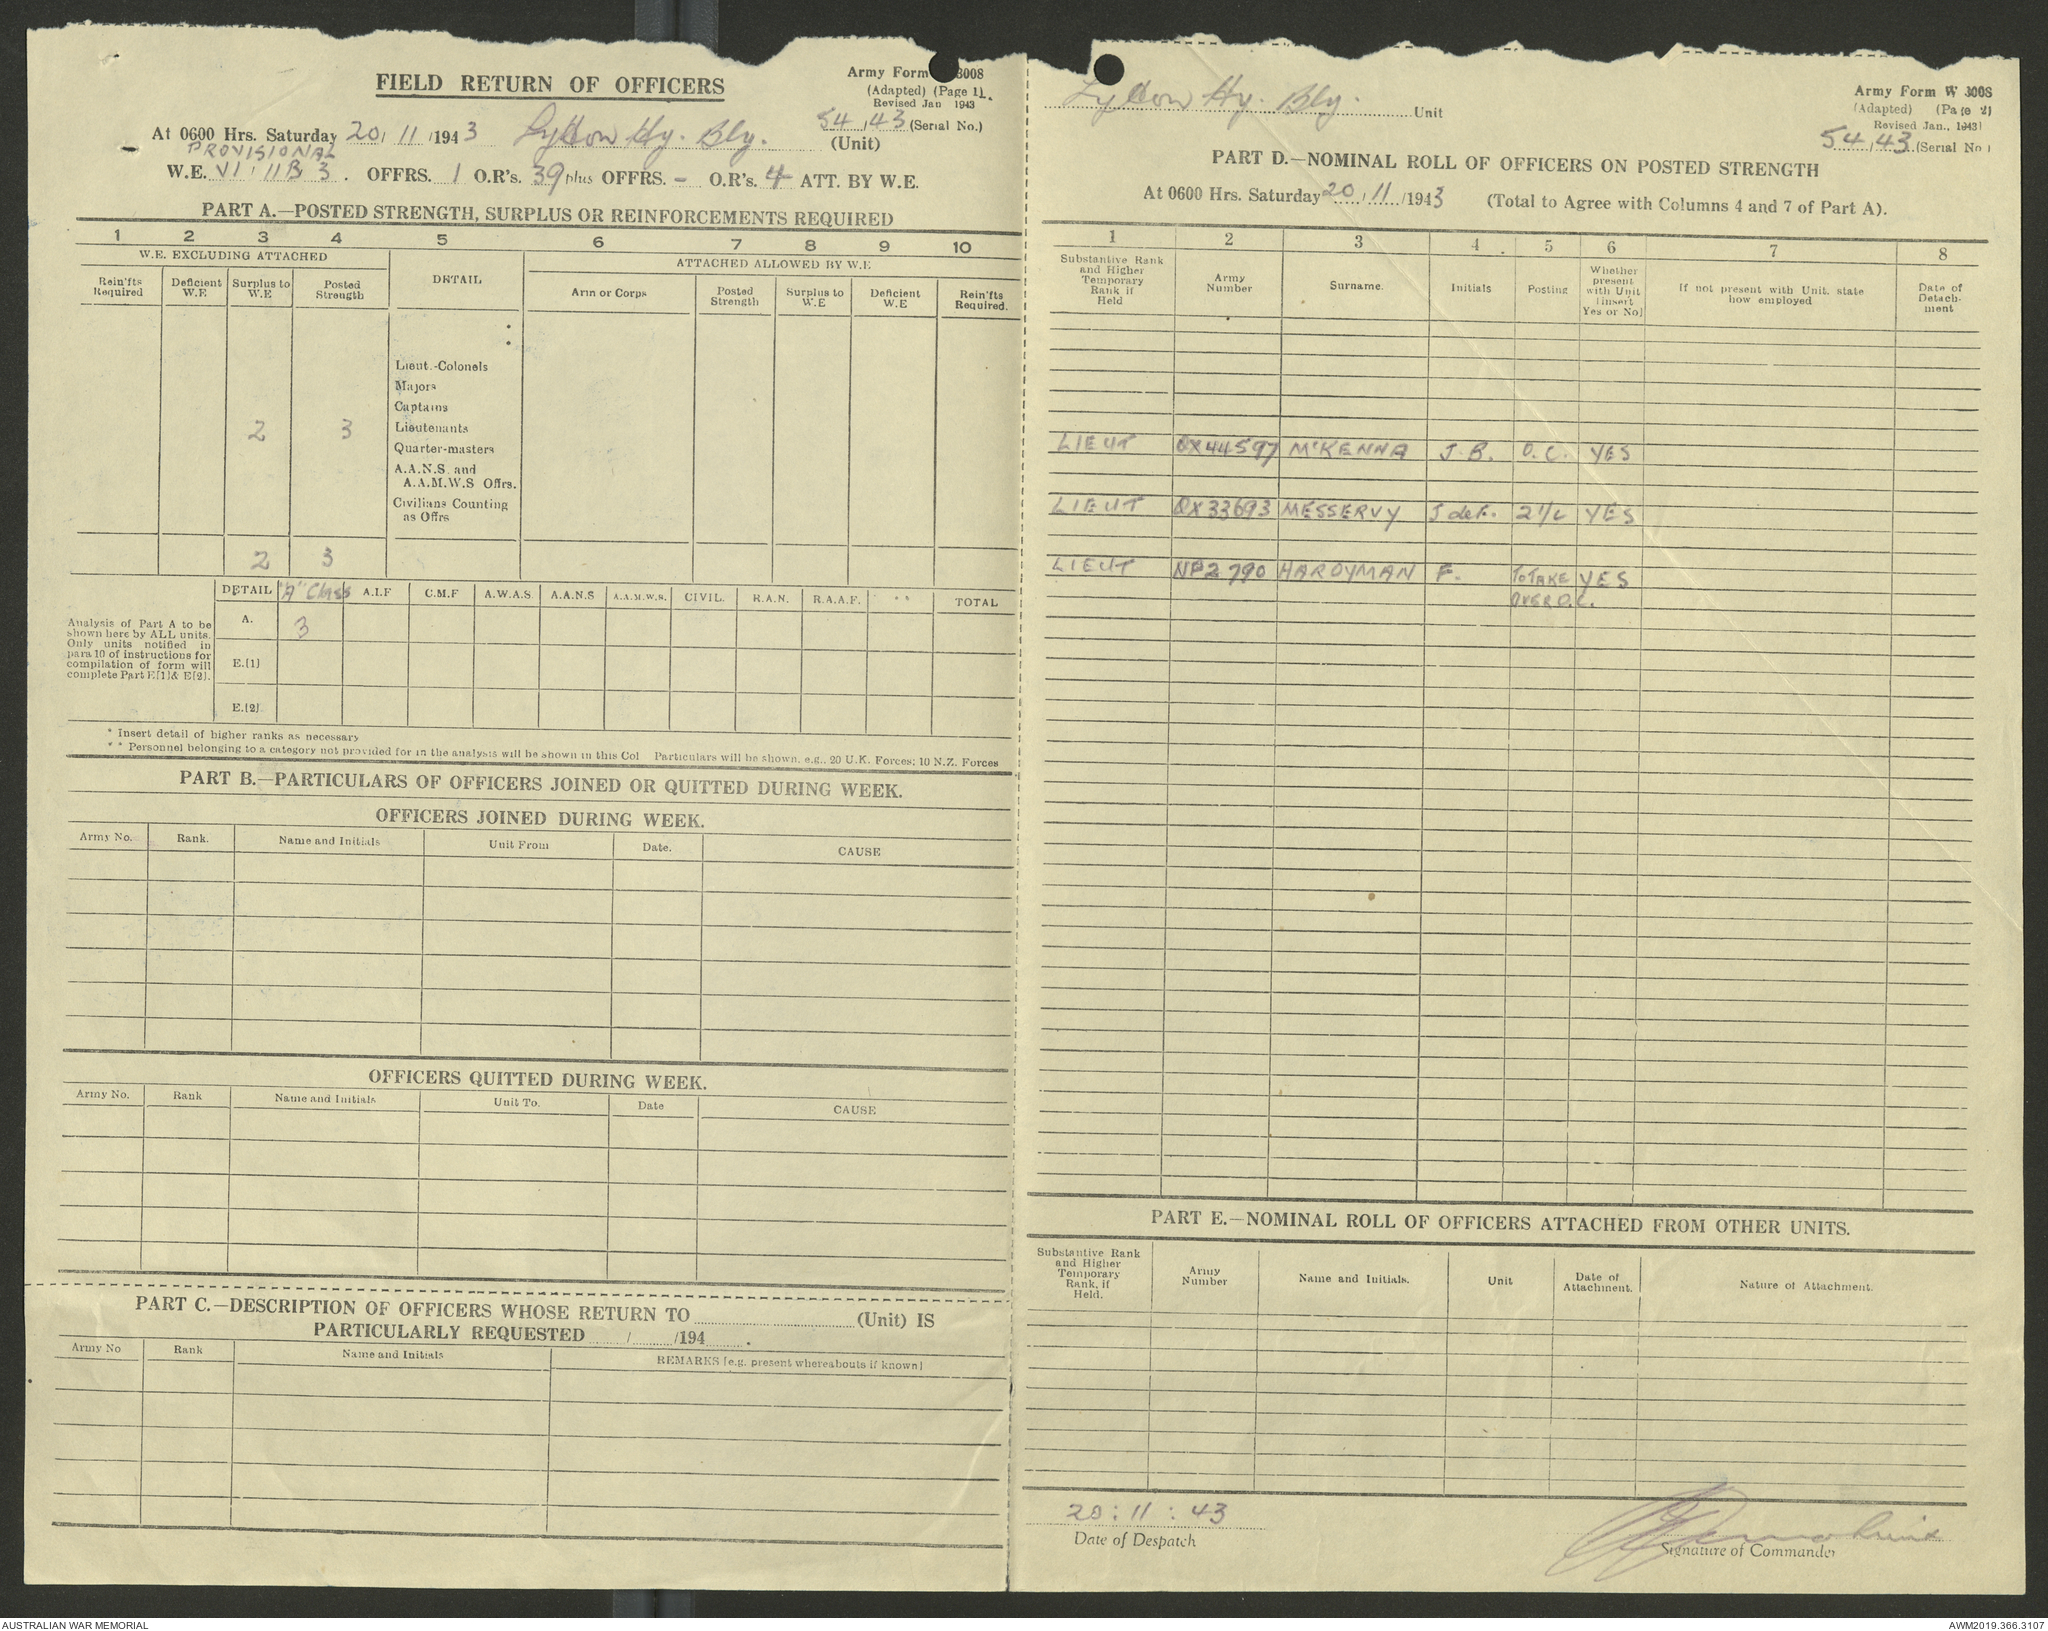 FIELD RETURN OF OFFICERS
Army Form 3008
(Adapted) (Page 1).
Revised Jan 1943
At 0600 Hrs. Saturday 20/11/1943 Lytton Hy. Bty. (Unit)
54/43 (Serial No.)
PROVISIONAL
W.E. VI/11B/3. OFFRS. 1 O.R's. 39 plus OFFRS. - O.R's. 4 ATT. BY W.E.
PART A.—POSTED STRENGTH, SURPLUS OR REINFORCEMENTS REQUIRED
1 2 3 4 5 6 7 8 9 10
W.E. EXCLUDING ATTACHED
DETAIL
ATTACHED ALLOWED BY W.E
Rein'fts Required
Deficient W.E
Surplus to W.E
Posted Strength
Arm or Corps
Posted Strength
Surplus to W.E
Deficient W.E
Rein'fts Required.
*
*
Lieut.-Colonels
Majors
Captains
2 3 Lieutenants
Quarter-masters
A.A.N.S. and
A.A.M.W.S Offrs.
Civilians Counting
as Offrs
2 3
DETAIL "A" Class A.I.F C.M.F A.W.A.S. A.A.N.S A.A.M.W.S. CIVIL. R.A.N. R.A.A.F. ** TOTAL
Analysis of Part A to be
shown here by ALL units.
Only units notified in
para 10 of instructions for
compilation of form will
complete Part E[1] & E[2].
A. 3
E.[1]
E.[2]
* Insert detail of higher ranks as necessary
* * Personnel belonging to a category not provided for in the analysis will be shown in this Col Particulars will be shown, e.g., 20 U.K. Forces; 10 N.Z. Forces
PART B.—PARTICULARS OF OFFICERS JOINED OR QUITTED DURING WEEK.
OFFICERS JOINED DURING WEEK.
Army No. Rank. Name and Initials Unit From Date. CAUSE
OFFICERS QUITTED DURING WEEK.
Army No. Rank Name and Initials Unit To. Date CAUSE
PART C.—DESCRIPTION OF OFFICERS WHOSE RETURN TO (Unit) IS
PARTICULARLY REQUESTED / /194 .
Army No Rank Name and Initials REMARKS [e.g. present whereabouts if known]
Lytton Hy. Bty. Unit
Army Form W 3008
(Adapted) (Page 2)
Revised Jan., 1943
54/43 (Serial No.)
PART D.—NOMINAL ROLL OF OFFICERS ON POSTED STRENGTH
At 0600 Hrs. Saturday 20/11/1943 (Total to Agree with Columns 4 and 7 of Part A).
1 2 3 4 5 6 7 8
Substantive Rank and Higher Temporary Rank if Held
Army Number
Surname.
Initials
Posting
Whether present with Unit [insert Yes or No]
If not present with Unit, state how employed
Date of Detachment
LIEUT QX44597 McKENNA J.B. O.C. YES
LIEUT QX33693 MESSERVY J deF. 2 I/C YES
LIEUT NP2790 HARDYMAN F. TO TAKE YES
OVER O.C.
PART E.—NOMINAL ROLL OF OFFICERS ATTACHED FROM OTHER UNITS.
Substantive Rank and Higher Temporary Rank, if Held.
Army Number
Name and Initials.
Unit
Date of Attachment.
Nature of Attachment.
20:11:43
Date of Despatch
Signature of Commander
AUSTRALIAN WAR MEMORIAL
AWM2019.366.3107